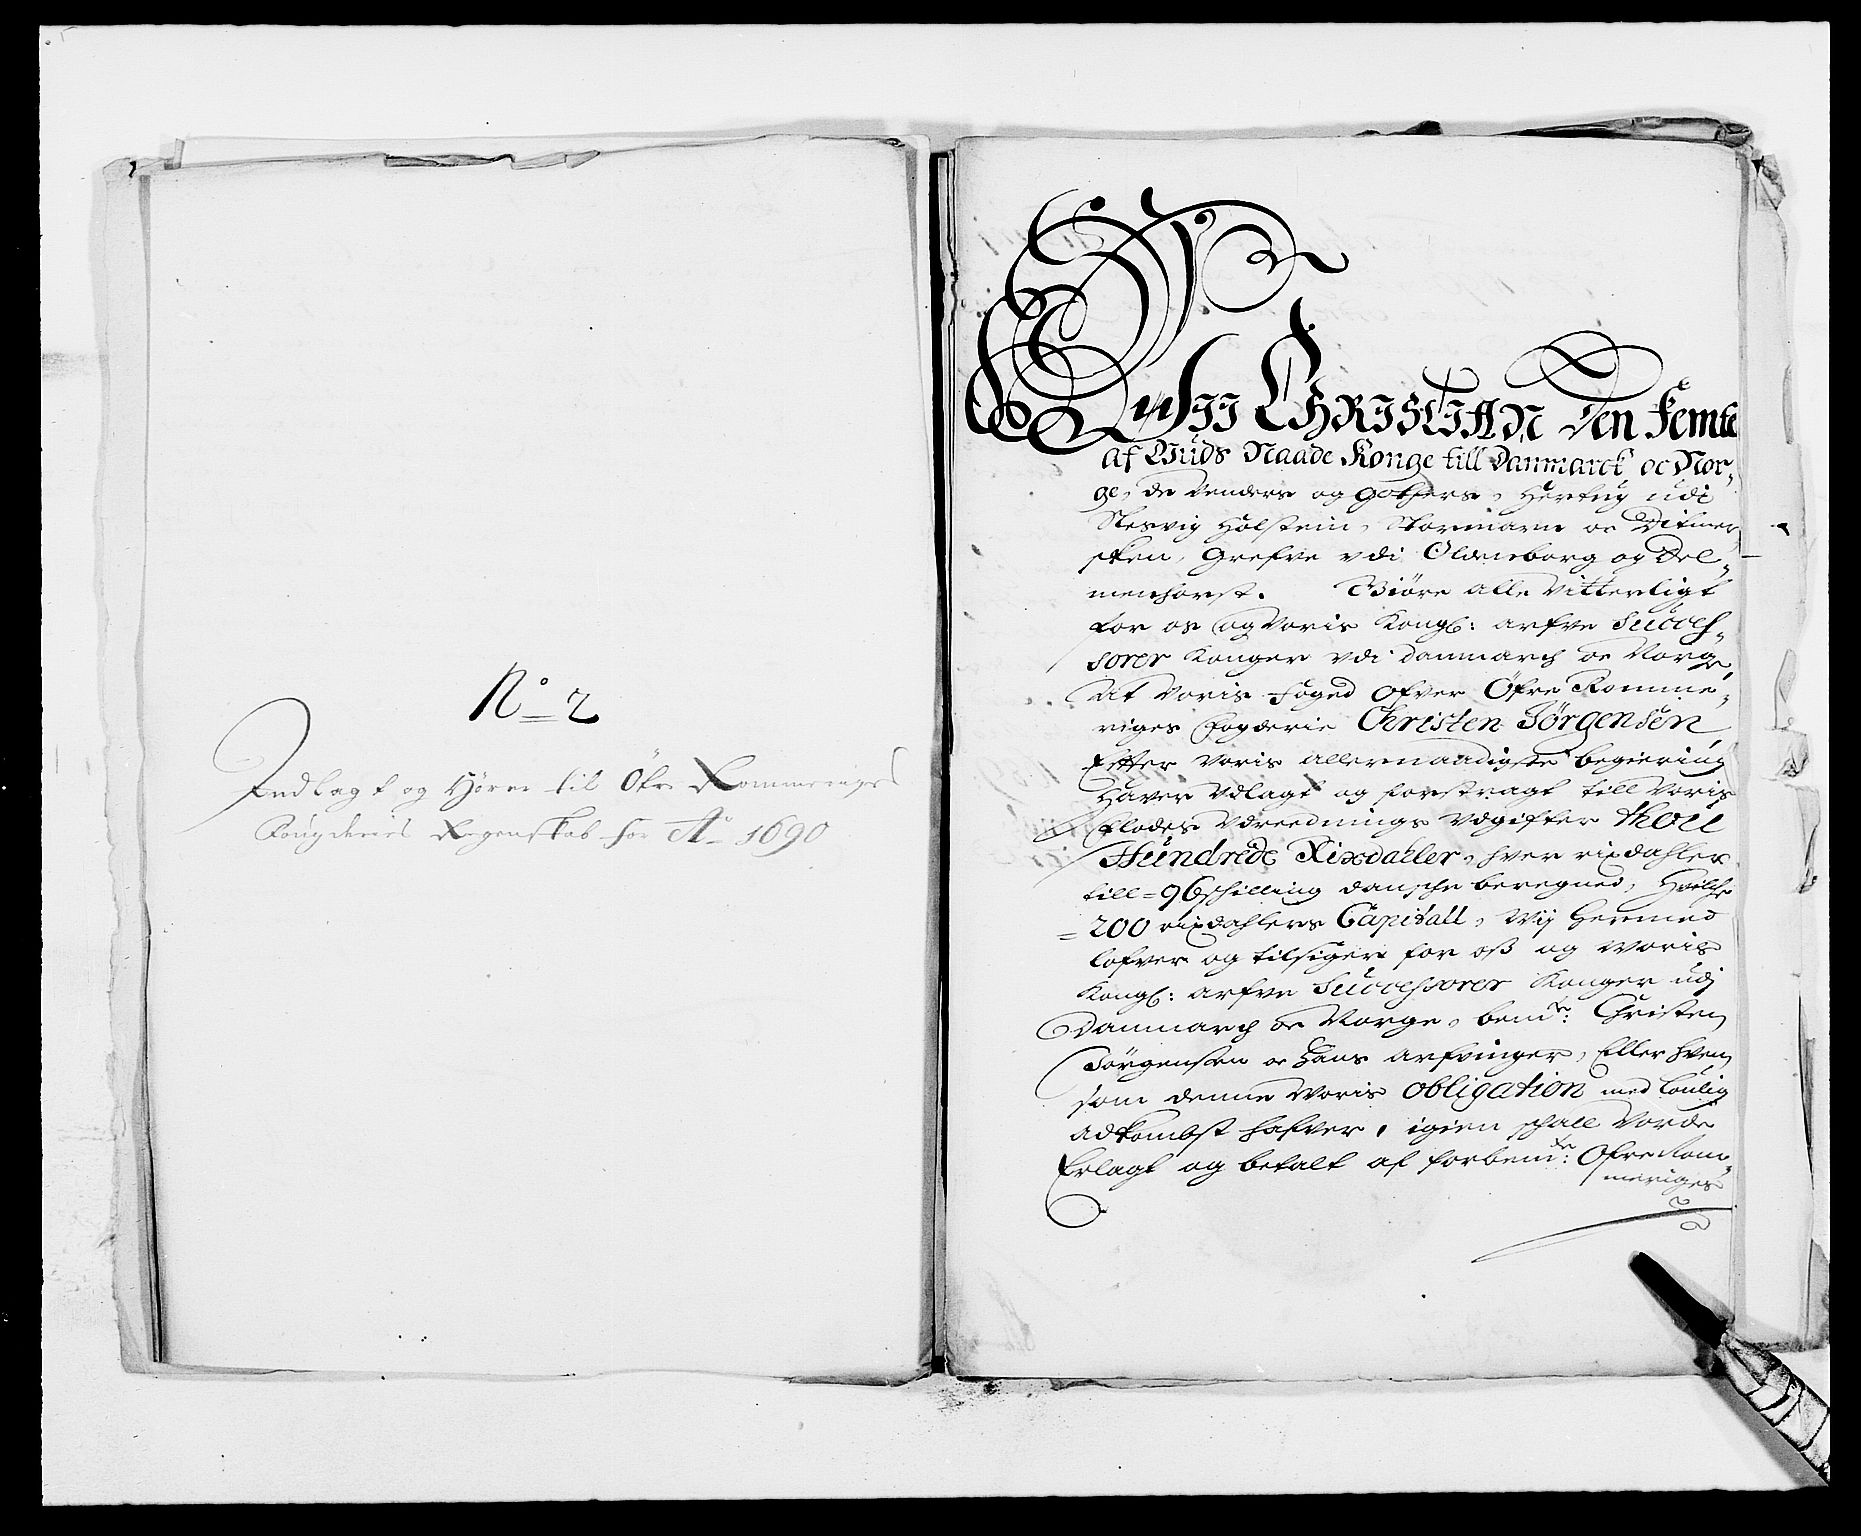 No 2
Indlagt og Hörer til Öfre Rommeriges
Fougderies Regenskab for Ao 1690
Wii CHRISTIAN Den Femte
af Guds Naade Konge till Danmarck oc Nor-
ge, de Venders og Gothers, Hertug udi
Slesvig Holstein, Stormarn oc Ditmer
sken, Grefve udi Oldenborg og Del-
menhorst. Giöre alle Vitterligt
for os og Voris Kongl: arfve Succes-
sorer Konger vdi Danmarch oc Norge,
At Voris foged ofver Öfre Romme-
riges fogderie Christen Jörgensen
Effter Voris allernaadigste begiering
Haver Vdlagt og forstragt till Voris
Flodes Vdreednings Vdgifter thou
Hundrede Rixdaller, hver rixdahler
till = 96 schilling dansche beregned, Hvilche
= 200 rixdahlers Capitall, Wij hermed
lofver og tilsiger for oß og Woris
Kongl: arfve Successorer Konger udj
Danmarch oc Norge, bemte: Christen
Jörgensen oc Hans arfvinger, Eller hvem
som denne Woris obligation med louglig
adkombst hafver, igien schall Vorde
Erlagt og betalt af forbemte: Ofre Rom-
meriges